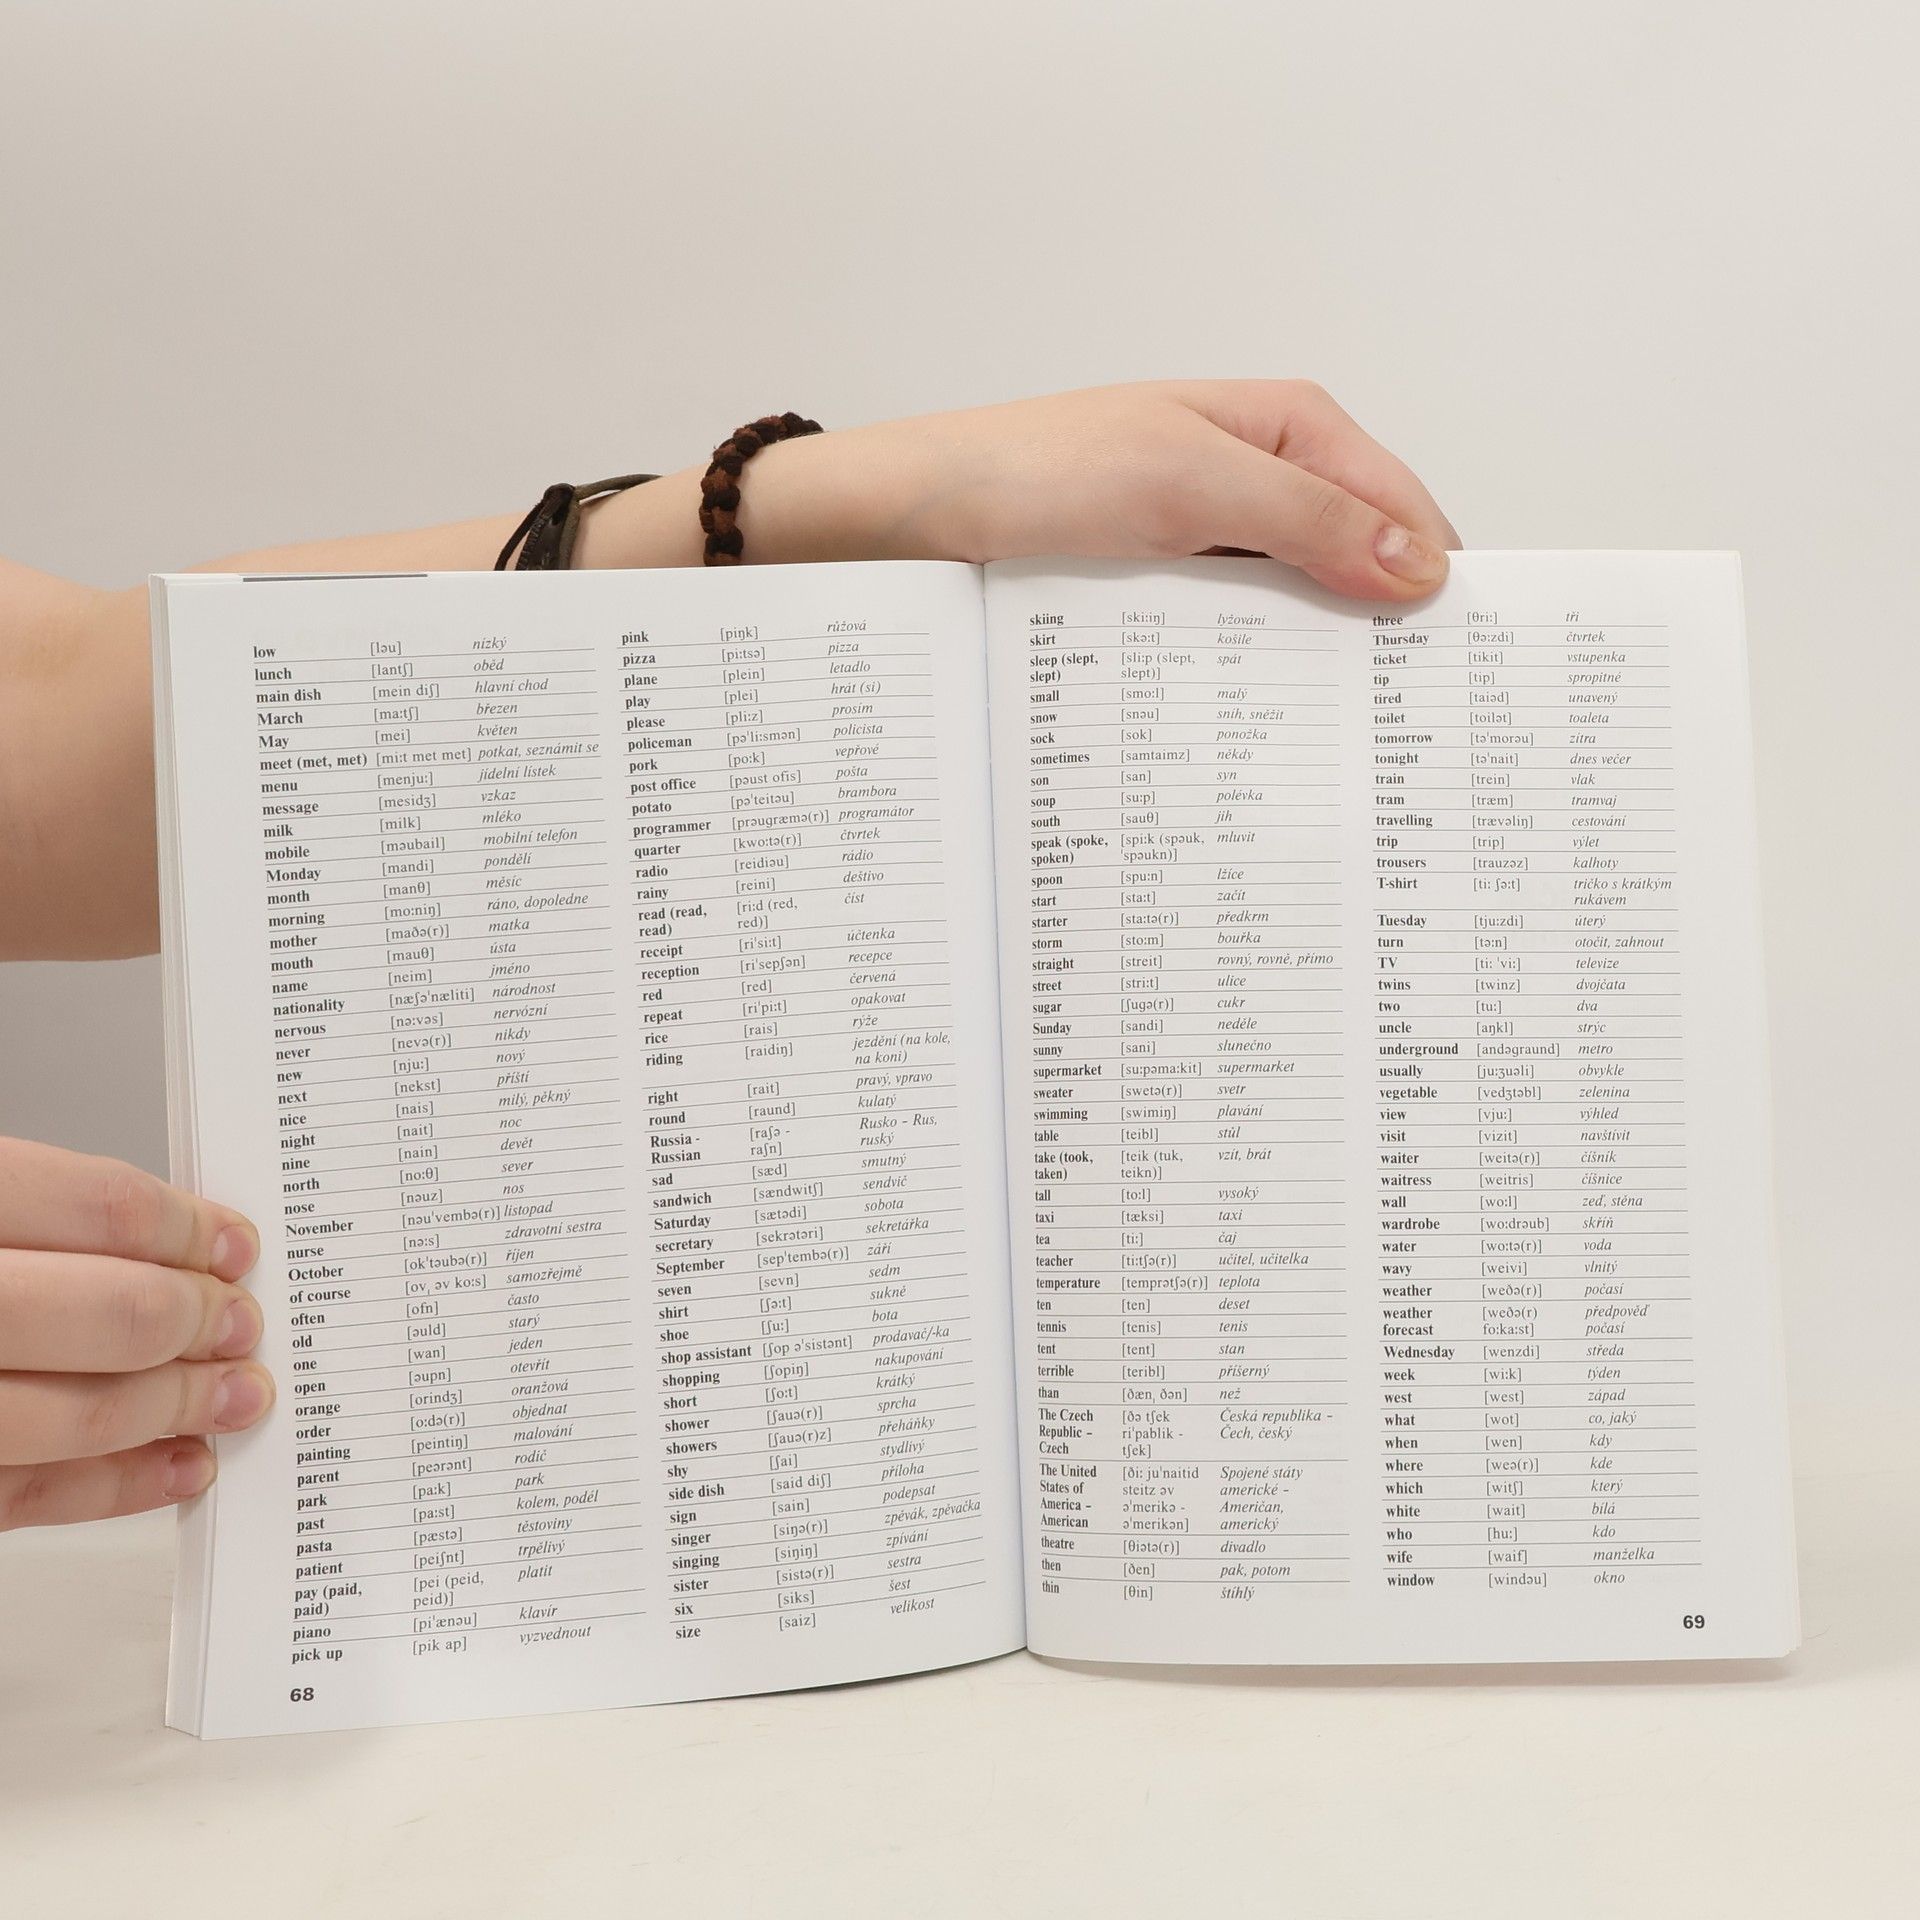 low [ləu] nízký
lunch [lantʃ] oběd
main dish [mein diʃ] hlavní chod
March [ma:tʃ] březen
May [mei] květen
meet (met, met) [mi:t met met] potkat, seznámit se
menu [menju:] jídelní lístek
message [mesidʒ] vzkaz
milk [milk] mléko
mobile [məubail] mobilní telefon
Monday [mandi] pondělí
month [manθ] měsíc
morning [mo:niŋ] ráno, dopoledne
mother [maðə(r)] matka
mouth [mauθ] ústa
name [neim] jméno
nationality [næʃə'næliti] národnost
nervous [nə:vəs] nervózní
never [nevə(r)] nikdy
new [nju:] nový
next [nekst] příští
nice [nais] milý, pěkný
night [nait] noc
nine [nain] devět
north [no:θ] sever
nose [nəuz] nos
November [nəu'vembə(r)] listopad
nurse [nə:s] zdravotní sestra
October [ok'təubə(r)] říjen
of course [ov, əv ko:s] samozřejmě
often [ofn] často
old [əuld] starý
one [wan] jeden
open [əupn] otevřít
orange [orindʒ] oranžová
order [o:də(r)] objednat
painting [peintiŋ] malování
parent [peərənt] rodič
park [pa:k] park
past [pa:st] kolem, podél
pasta [pæstə] těstoviny
patient [peiʃnt] trpělivý
pay (paid, [pei (peid, platit
paid) peid)]
piano [pi'ænəu] klavír
pick up [pik ap] vyzvednout
68
pink [piŋk] růžová
pizza [pi:tsə] pizza
plane [plein] letadlo
play [plei] hrát (si)
please [pli:z] prosím
policeman [pə'li:smən] policista
pork [po:k] vepřové
post office [pəust ofis] pošta
potato [pə'teitəu] brambora
programmer [prəugræmə(r)] programátor
quarter [kwo:tə(r)] čtvrtek
radio [reidiəu] rádio
rainy [reini] deštivo
read (read, [ri:d (red, číst
read) red)]
receipt [ri'si:t] účtenka
reception [ri'sepʃən] recepce
red [red] červená
repeat [ri'pi:t] opakovat
rice [rais] rýže
riding [raidiŋ] jezdění (na kole,
na koni)
right [rait] pravý, vpravo
round [raund] kulatý
Russia - [raʃə - Rusko – Rus,
Russian raʃn] ruský
sad [sæd] smutný
sandwich [sændwitʃ] sendvič
Saturday [sætədi] sobota
secretary [sekrətəri] sekretářka
September [sep'tembə(r)] září
seven [sevn] sedm
shirt [ʃə:t] sukně
shoe [ʃu:] bota
shop assistant [ʃop ə'sistənt] prodavač/-ka
shopping [ʃopiŋ] nakupování
short [ʃo:t] krátký
shower [ʃauə(r)] sprcha
showers [ʃauə(r)z] přeháňky
shy [ʃai] stydlivý
side dish [said diʃ] příloha
sign [sain] podepsat
singer [siŋə(r)] zpěvák, zpěvačka
singing [siŋiŋ] zpívání
sister [sistə(r)] sestra
six [siks] šest
size [saiz] velikost
skiing [ski:iŋ] lyžování
skirt [skə:t] košile
sleep (slept, [sli:p (slept, spát
slept) slept)]
small [smo:l] malý
snow [snəu] sníh, sněžit
sock [sok] ponožka
sometimes [samtaimz] někdy
son [san] syn
soup [su:p] polévka
south [sauθ] jih
speak (spoke, [spi:k (spəuk, mluvit
spoken) 'spəukn)]
spoon [spu:n] lžíce
start [sta:t] začít
starter [sta:tə(r)] předkrm
storm [sto:m] bouřka
straight [streit] rovný, rovně, přímo
street [stri:t] ulice
sugar [ʃugə(r)] cukr
Sunday [sandi] neděle
sunny [sani] slunečno
supermarket [su:pəma:kit] supermarket
sweater [swetə(r)] svetr
swimming [swimiŋ] plavání
table [teibl] stůl
take (took, [teik (tuk, vzít, brát
taken) teikn)]
tall [to:l] vysoký
taxi [tæksi] taxi
tea [ti:] čaj
teacher [ti:tʃə(r)] učitel, učitelka
temperature [temprətʃə(r)] teplota
ten [ten] deset
tennis [tenis] tenis
tent [tent] stan
terrible [teribl] příšerný
than [ðæn, ðən] než
The Czech [ðə tʃek Česká republika –
Republic – ri'pablik - Čech, český
Czech tʃek]
The United [ði: ju'naitid Spojené státy
States of steitz əv americké –
America – ə'merikə - Američan,
American ə'merikən] americký
theatre [θiətə(r)] divadlo
then [ðen] pak, potom
thin [θin] štíhlý
three [θri:] tři
Thursday [θə:zdi] čtvrtek
ticket [tikit] vstupenka
tip [tip] spropitné
tired [taiəd] unavený
toilet [toilət] toaleta
tomorrow [tə'morəu] zítra
tonight [tə'nait] dnes večer
train [trein] vlak
tram [træm] tramvaj
travelling [trævəliŋ] cestování
trip [trip] výlet
trousers [trauzəz] kalhoty
T-shirt [ti: ʃə:t] tričko s krátkým
rukávem
Tuesday [tju:zdi] úterý
turn [tə:n] otočit, zahnout
TV [ti: 'vi:] televize
twins [twinz] dvojčata
two [tu:] dva
uncle [aŋkl] strýc
underground [andəgraund] metro
usually [ju:ʒuəli] obvykle
vegetable [vedʒtəbl] zelenina
view [vju:] výhled
visit [vizit] navštívit
waiter [weitə(r)] číšník
waitress [weitris] číšnice
wall [wo:l] zeď, stěna
wardrobe [wo:drəub] skříň
water [wo:tə(r)] voda
wavy [weivi] vlnitý
weather [weðə(r)] počasí
weather [weðə(r) předpověď
forecast fo:ka:st] počasí
Wednesday [wenzdi] středa
week [wi:k] týden
west [west] západ
what [wot] co, jaký
when [wen] kdy
where [weə(r)] kde
which [witʃ] který
white [wait] bílá
who [hu:] kdo
wife [waif] manželka
window [windəu] okno
69